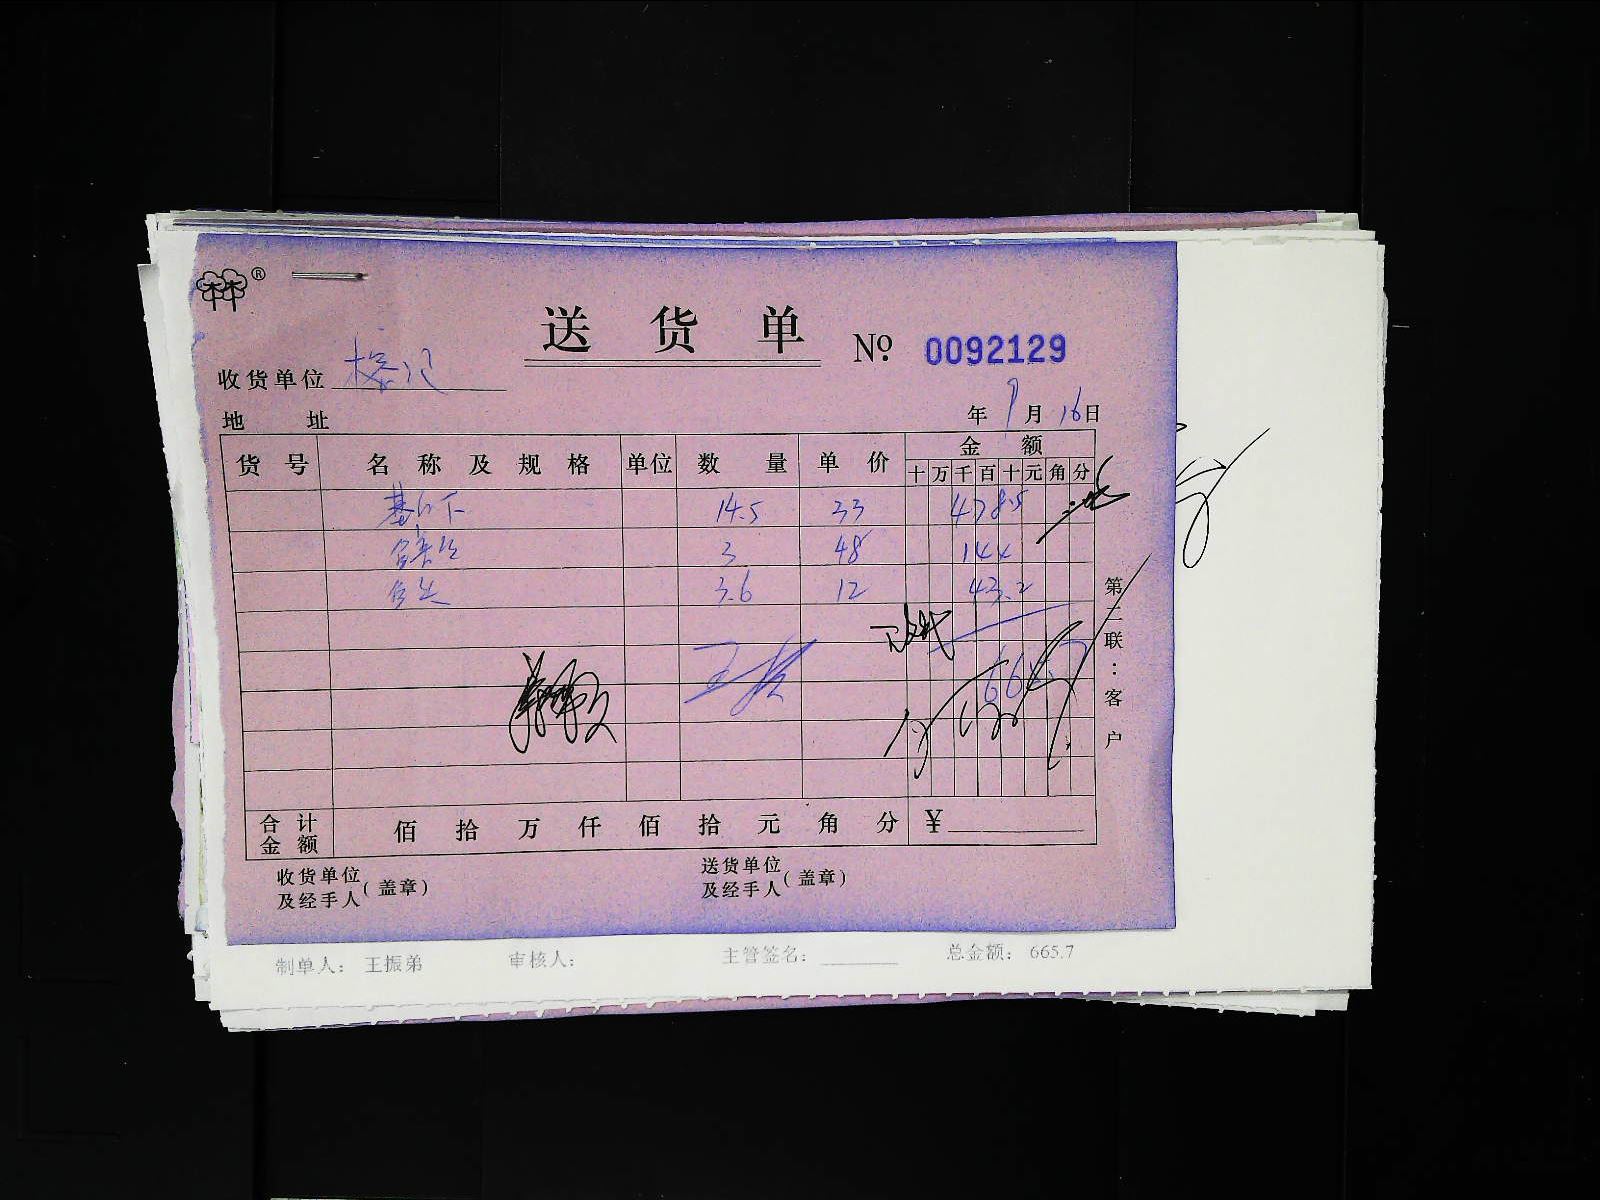 ®
送 货 单 № 0092129
收货单位
地 址 年 9 月 16 日
货 号 名 称 及 规 格 单位 数 量 单 价 金 额
十 万 千 百 十 元 角 分
14.5 33 478.5
3 48 144
鱼头 3.6 12 43.2
第二联:客户
合计金额 佰 拾 万 仟 佰 拾 元 角 分 ¥
收货单位及经手人(盖章) 送货单位及经手人(盖章)
制单人: 王振弟 审核人: 主管签名: 总金额: 665.7